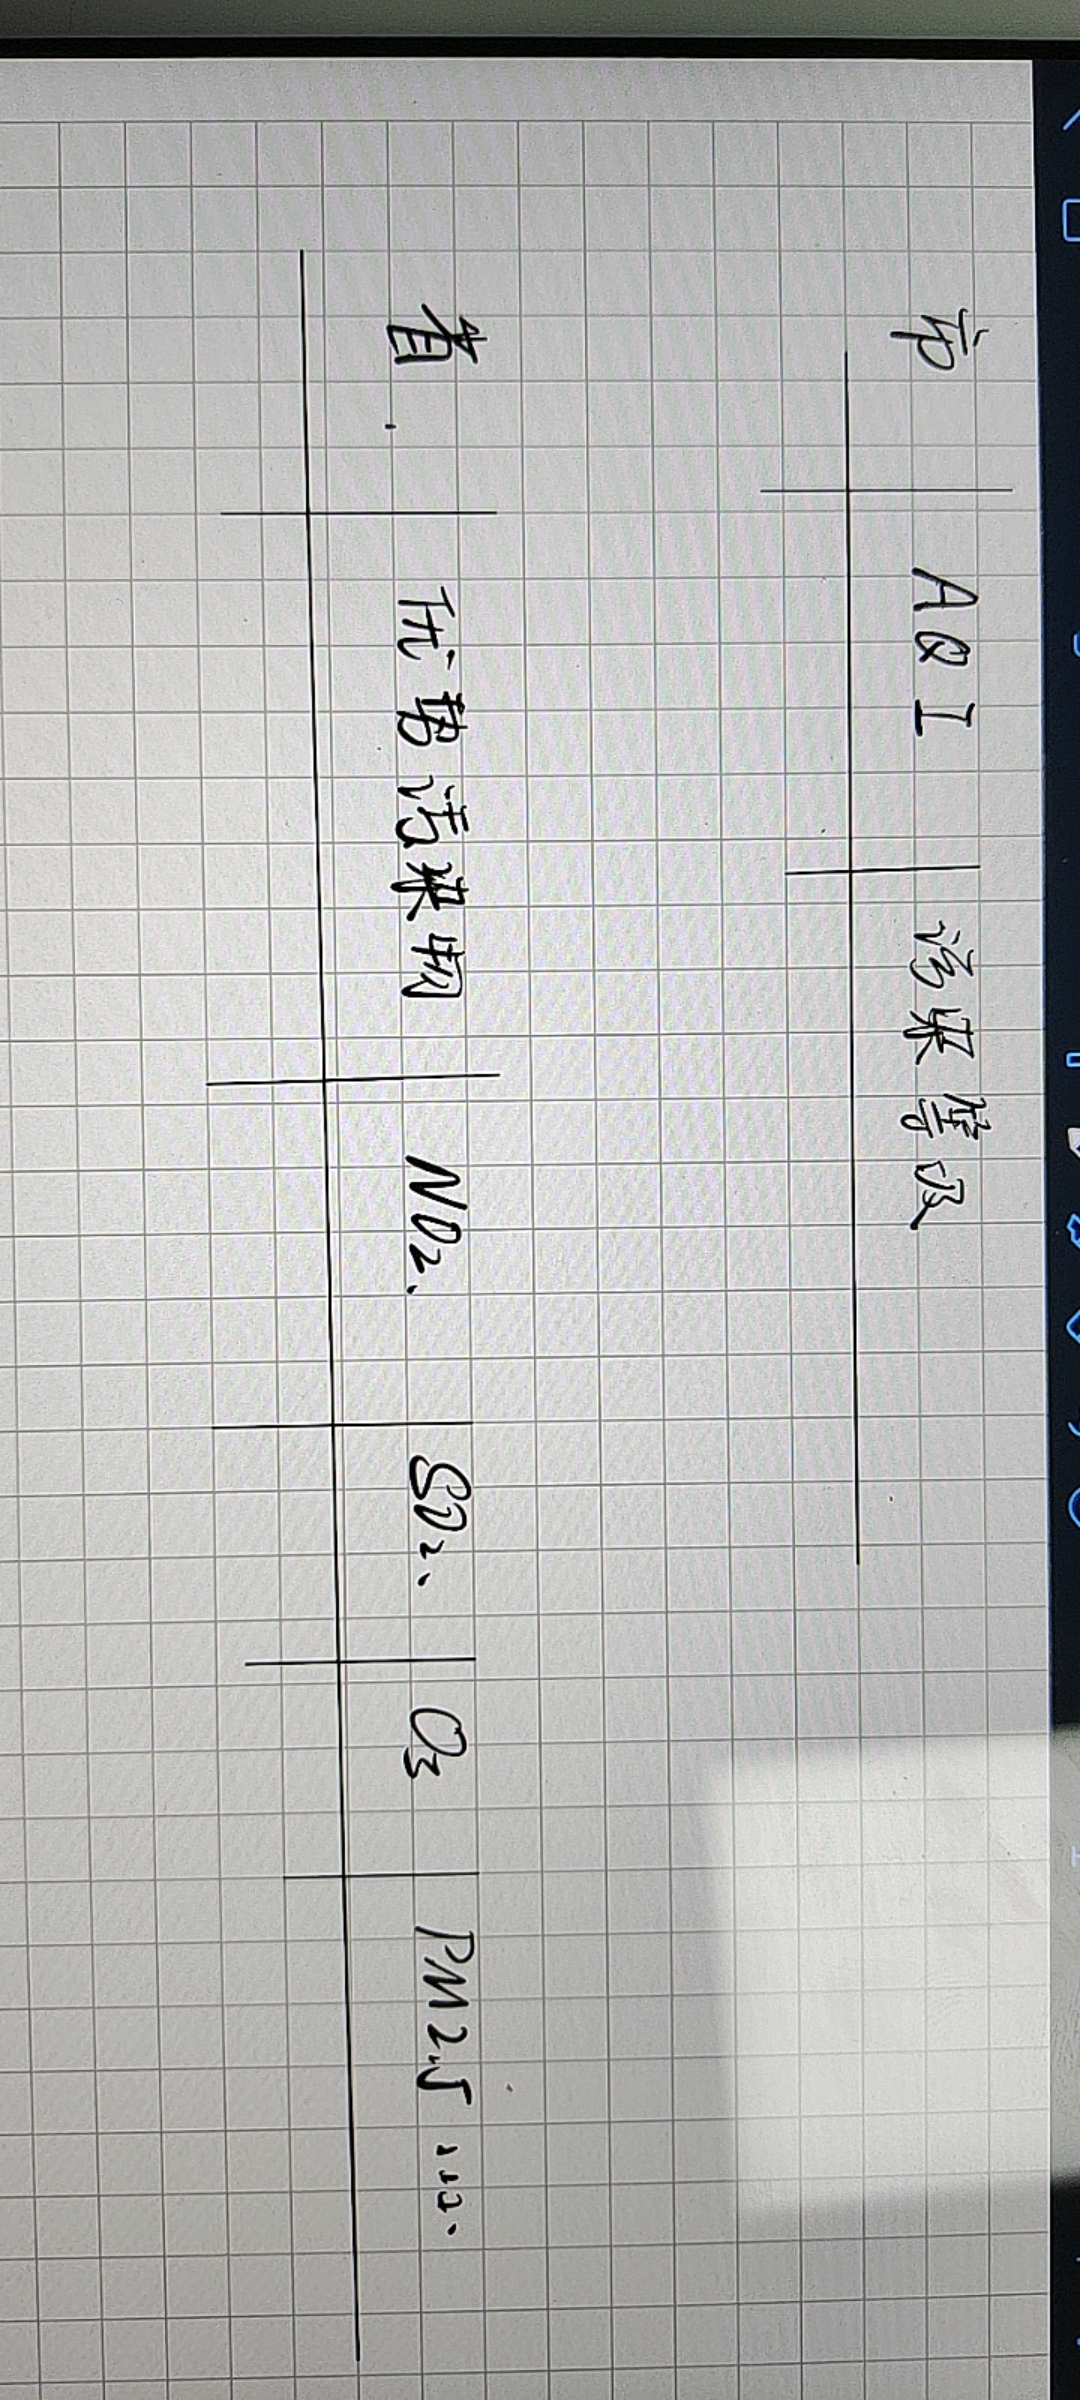 市 AQI 污染等级
省. 优势污染物 NO2. SO2. O3 PM2.5 ....